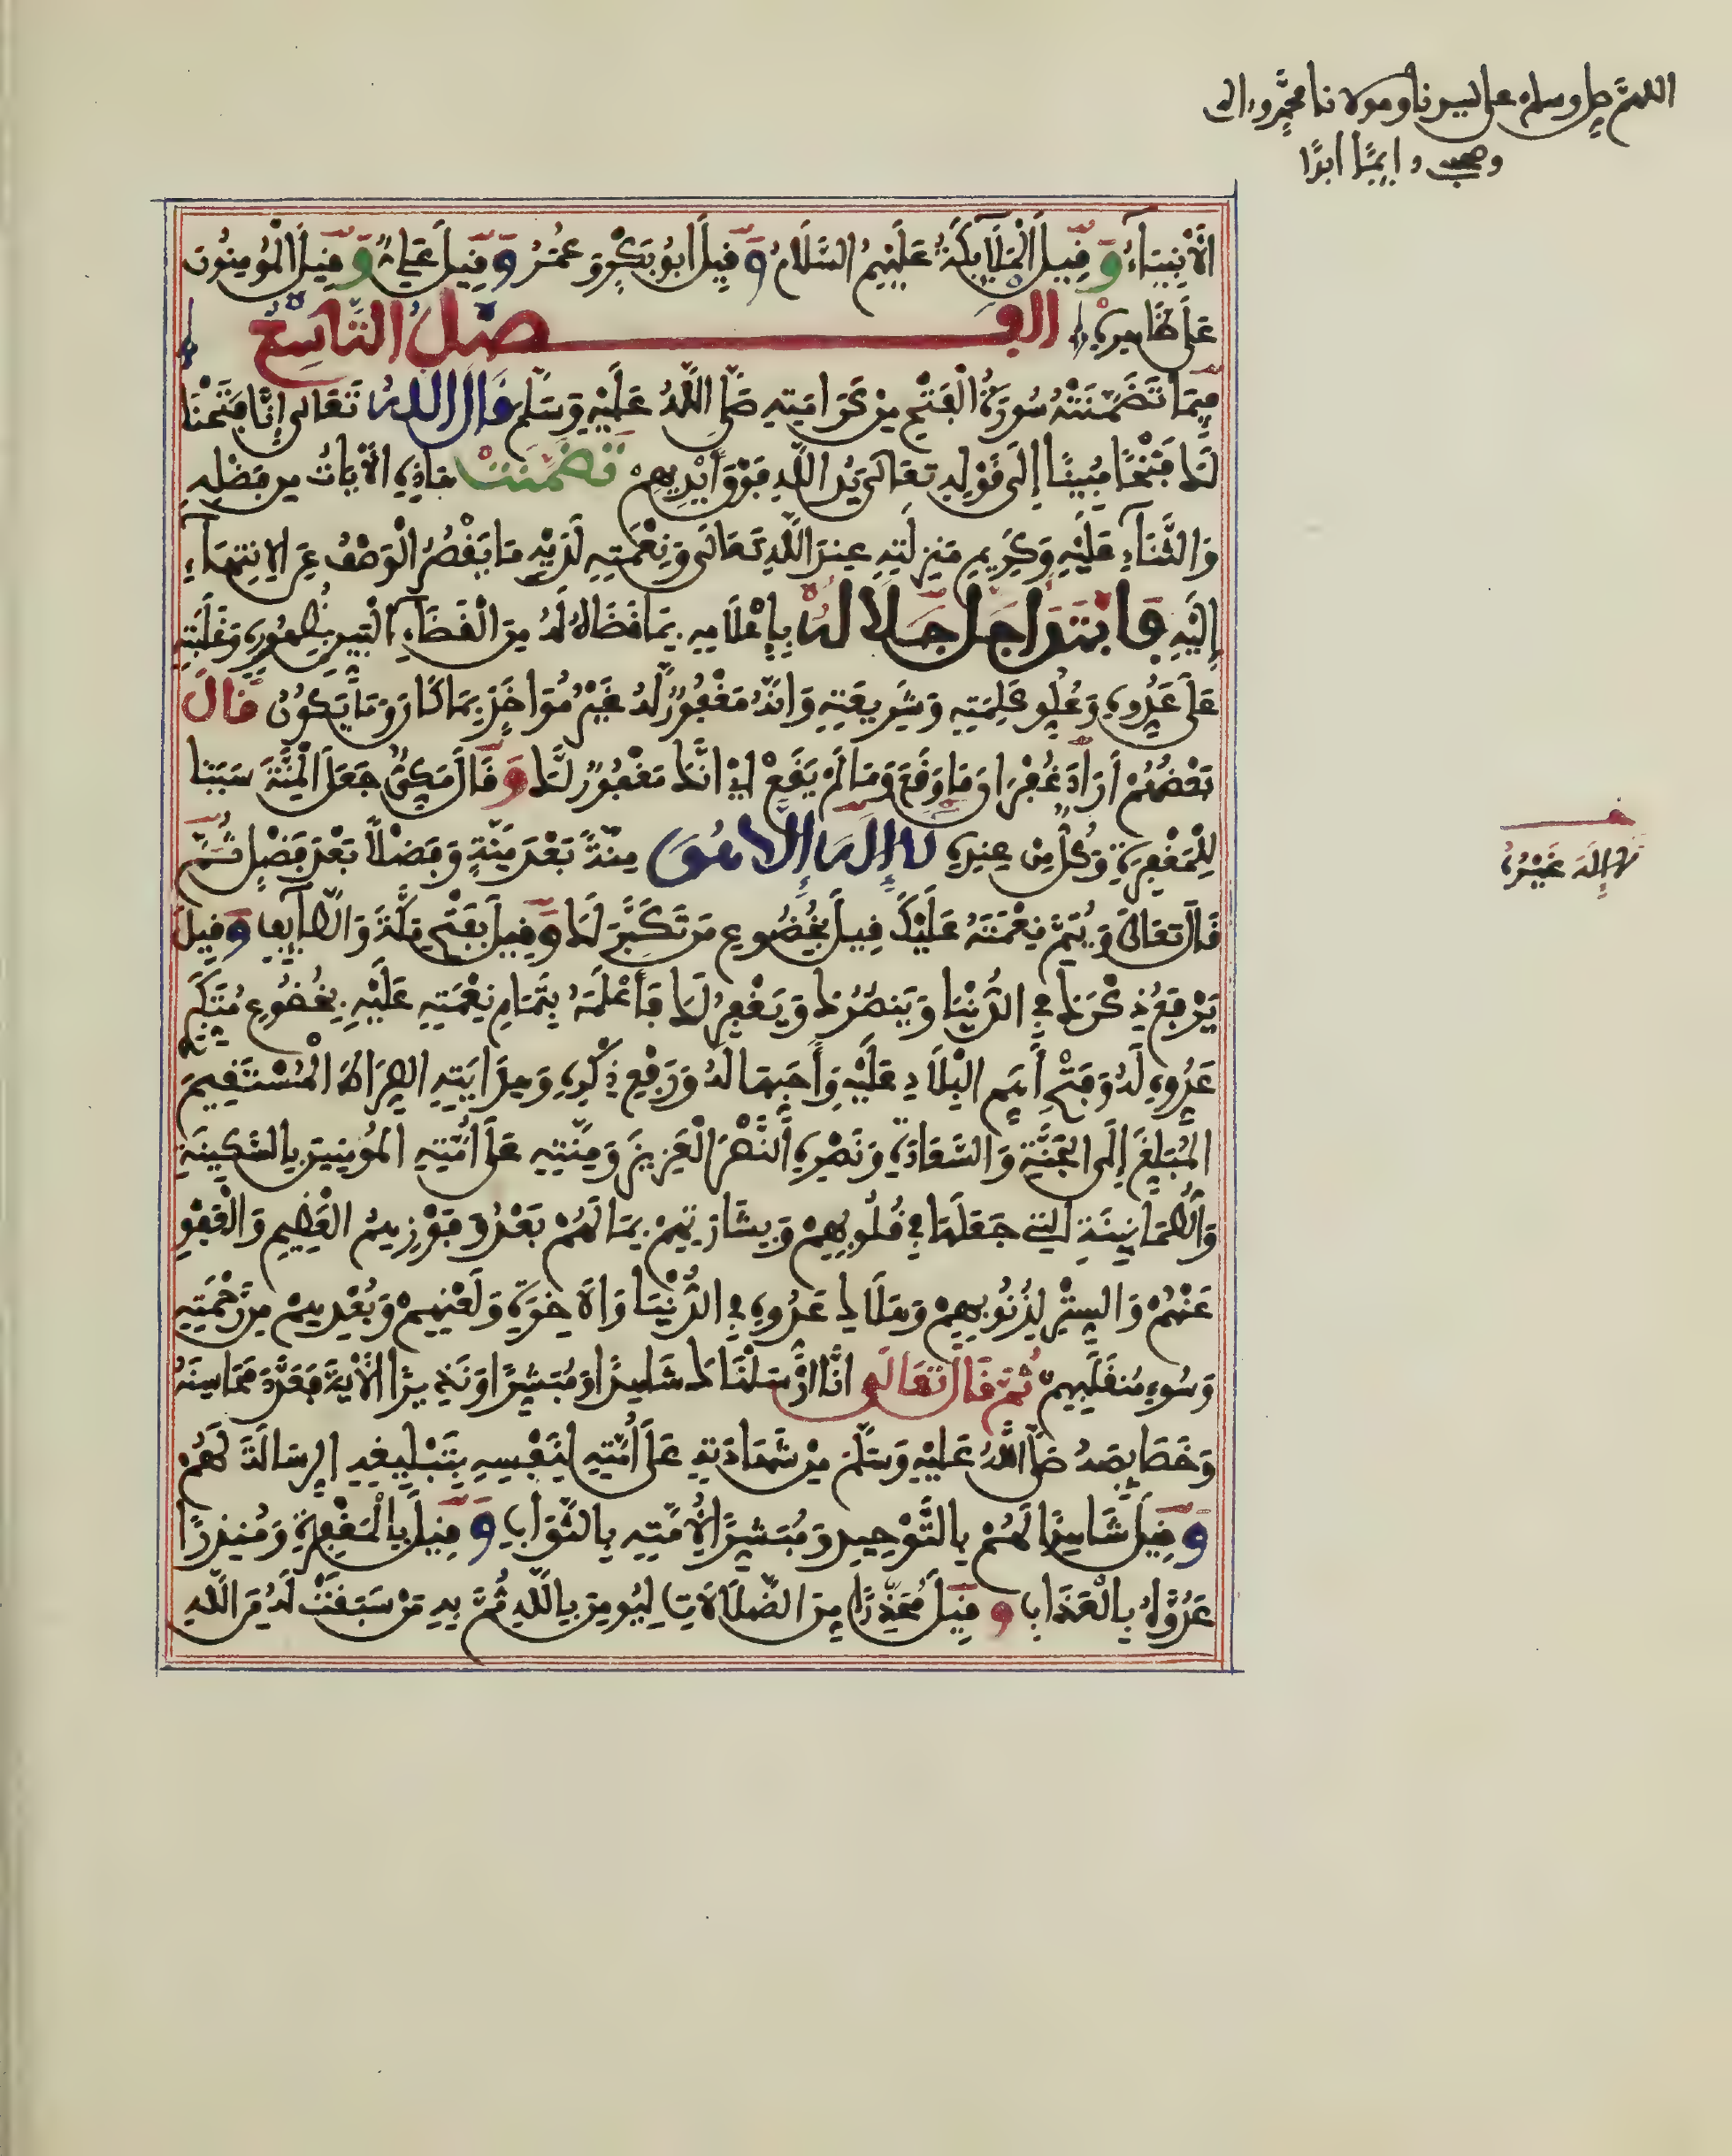 اللهم صل وسلم على سيدنا ومولانا محمد وءاله
وصحبه دايما ابدا
الْأَنْبِيَاءُ وَقِيلَ الْمَلَايِكَةُ عَلَيْهِمُ السَّلَامُ وَقِيلَ أَبُو بَكْرٍ وَعُمَرُ وَقِيلَ عَلِيٌّ وَقِيلَ الْمُومِنُونَ
عَلَى ظَاهِرِهِ الْفَصْلُ التَّاسِعُ
فِيمَا تَضَمَّنَتْهُ سُورَةُ الْفَتْحِ مِنْ كَرَامَتِهِ صَلَّى اللَّهُ عَلَيْهِ وَسَلَّمَ قَالَ اللَّهُ تَعَالَى إِنَّا فَتَحْنَا
لَكَ فَتْحًا مُبِينًا إِلَى قَوْلِهِ تَعَالَى يَدُ اللَّهِ فَوْقَ أَيْدِيهِمْ تَضَمَّنَتْ هَاذِهِ الْآيَاتُ مِن فَضْلِهِ
وَالثَّنَاءِ عَلَيْهِ وَكَرِيمِ مَنْزِلَتِهِ عِندَ اللَّهِ تَعَالَى وَنِعْمَتِهِ لَدَيْهِ مَا يَقْصُرُ الْوَصْفُ عَنِ الِانْتِهَاءِ
إِلَيْهِ فَابْتَدَأَ جَلَّ جَلَالُهُ بِإِعْلَامِهِ بِمَا قَضَاهُ لَهُ مِنَ الْقَضَاءِ الْبَيِّنِ بِظُهُورِهِ وَغَلَبَتِهِ
عَلَى عَدُوِّهِ وَعُلُوِّ كَلِمَتِهِ وَشَرِيعَتِهِ وَأَنَّهُ مَغْفُورٌ لَهُ غَيْرُ مُؤَاخَذٍ بِمَا كَانَ وَمَا يَكُونُ قَالَ
بَعْضُهُمْ أَرَادَ غُفْرَانَ مَا وَقَعَ وَمَا لَمْ يَقَعْ أَيْ أَنَّكَ مَغْفُورٌ لَكَ وَقَالَ مَكِّيٌّ جَعَلَ الْمِنَّةَ سَبَبًا
لِلْمَغْفِرَةِ وَكُلٌّ مِنْ عِندِهِ لَا إِلَهَ إِلَّا هُوَ مِنَّةً بَعْدَ مِنَّةٍ وَفَضْلًا بَعْدَ فَضْلٍ ثُمَّ
لَا إِلَهَ غَيْرُهُ
قَالَ تَعَالَى وَيُتِمَّ نِعْمَتَهُ عَلَيْكَ قِيلَ بِخُضُوعِ مَن تَكَبَّرَ لَكَ وَقِيلَ بِفَتْحِ مَكَّةَ وَالطَّايِفِ وَقِيلَ
يَرْفَعُ ذِكْرَكَ فِي الدُّنْيَا وَيَنصُرُكَ وَيَغْفِرُ لَكَ فَأَعْلَمَهُ بِتَمَامِ نِعْمَتِهِ عَلَيْهِ بِخُضُوعِ مُتَكَبِّرِي
عَدُوِّهِ لَهُ وَفَتْحِ أَهَمِّ الْبِلَادِ عَلَيْهِ وَأَحَبِّهَا لَهُ وَرَفْعِ ذِكْرِهِ وَهِدَايَتِهِ الصِّرَاطَ الْمُسْتَقِيمَ
الْمُبَلِّغَ إِلَى الْجَنَّةِ وَالسَّعَادَةِ وَنَصْرِهِ النَّصْرَ الْعَزِيزَ وَمِنَّتِهِ عَلَى أُمَّتِهِ الْمُومِنِينَ بِالسَّكِينَةِ
وَالطُّمَانِينَةِ الَّتِي جَعَلَهَا فِي قُلُوبِهِمْ وَبِشَارَتِهِمْ بِمَا لَهُمْ بَعْدُ وَفَوْزِهِمُ الْعَظِيمِ وَالْعَفْوِ
عَنْهُمْ وَالسِّتْرِ لِذُنُوبِهِمْ وَهَلَاكِ عَدُوِّهِ فِي الدُّنْيَا وَالْآخِرَةِ وَلَعْنِهِمْ وَبُعْدِهِمْ مِن رَّحْمَتِهِ
وَسُوءِ مُنقَلَبِهِمْ ثُمَّ قَالَ تَعَالَى إِنَّا أَرْسَلْنَاكَ شَاهِدًا وَمُبَشِّرًا وَنَذِيرًا الْآيَةَ فَعَدَّدَ مَحَاسِنَهُ
وَخَصَايِصَهُ صَلَّى اللَّهُ عَلَيْهِ وَسَلَّمَ مِنْ شَهَادَتِهِ عَلَى أُمَّتِهِ لِنَفْسِهِ بِتَبْلِيغِهِ الرِّسَالَةَ لَهُمْ
وَقِيلَ شَاهِدًا لَهُمْ بِالتَّوْحِيدِ وَمُبَشِّرًا لِأُمَّتِهِ بِالثَّوَابِ وَقِيلَ بِالْمَغْفِرَةِ وَمُنذِرًا
عَدُوَّهُ بِالْعَذَابِ وَقِيلَ مُحَذِّرًا مِنَ الضَّلَالَاتِ لِيُومِنَ بِاللَّهِ ثُمَّ بِهِ مَنْ سَبَقَتْ لَهُ مِنَ اللَّهِ